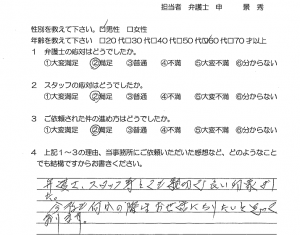 担当者 弁護士 申 景秀
性別を教えて下さい。☑男性 □女性
年齢を教えて下さい。□20代□30代□40代□50代☑60代□70才以上
1 弁護士の応対はどうでしたか。
①大変満足 ②満足 ③普通 ④不満 ⑤大変不満 ⑥分からない
2 スタッフの応対はどうでしたか。
①大変満足 ②満足 ③普通 ④不満 ⑤大変不満 ⑥分からない
3 ご依頼された件の進め方はどうでしたか。
①大変満足 ②満足 ③普通 ④不満 ⑤大変不満 ⑥分からない
4 上記1~3の理由、当事務所にご依頼いただいた感想など、どのようなこと
でも結構ですからお書きください。
弁護士、スタッフ等とても親切で良い印象でし
た。
今後も何れの際はお世話になりたいと思って
おります。